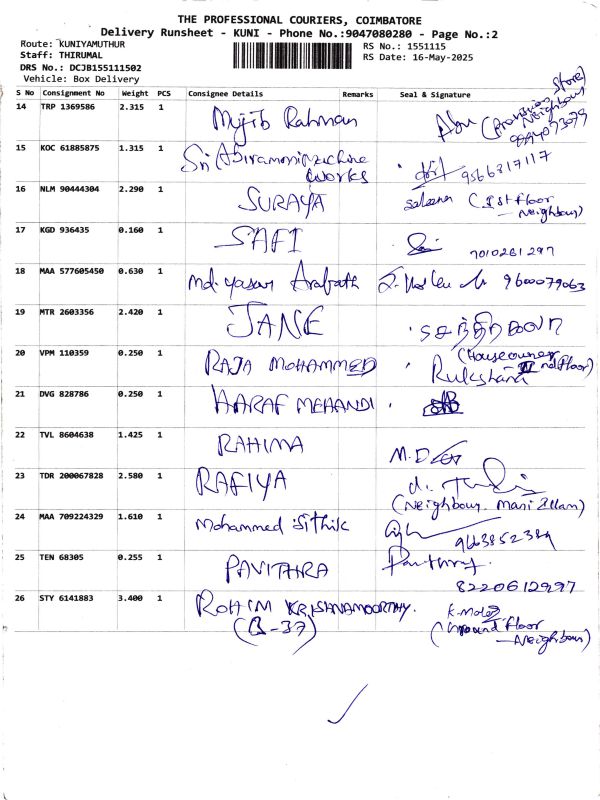 THE PROFESSIONAL COURIERS, COIMBATORE
Delivery Runsheet - KUNI - Phone No.:9047080280 - Page No.:2
Route: KUNIYAMUTHUR
RS No.: 1551115
Staff: THIRUMAL
RS Date: 16-May-2025
DRS No.: DCJB155111502
Vehicle: Box Delivery
S No Consignment No Weight PCS Consignee Details Remarks Seal & Signature
14 TRP 1369586 2.315 1 Mujib Rahman Abu (Provision Store)
Neighbour
15 KOC 61885875 1.315 1 Sri Abirami Machine
Works 9566317117
16 NLM 90444304 2.290 1 SURAYA Saleena (Ist Floor
- Neighbour)
17 KGD 936435 0.160 1 SAFI
7010261297
18 MAA 577605450 0.630 1 Md. Yasar Arafath 9600079063
19 MTR 2603356 2.420 1 JANE
20 VPM 110359 0.250 1 RAJA MOHAMMED (House owner
Rukshana IInd Floor)
21 DVG 828786 0.250 1 HARAF MEHANDI
22 TVL 8604638 1.425 1 RAHIMA
23 TDR 200067828 2.580 1 RAFIYA
(Neighbour. Mani Illam)
24 MAA 709224329 1.610 1 Mohammed Sithik
25 TEN 68305 0.255 1 PAVITHRA
8220612997
26 STY 6141883 3.400 1 ROHIM KRISHNAMOORTHY.
(B-37) (Ground Floor
- Neighbour)